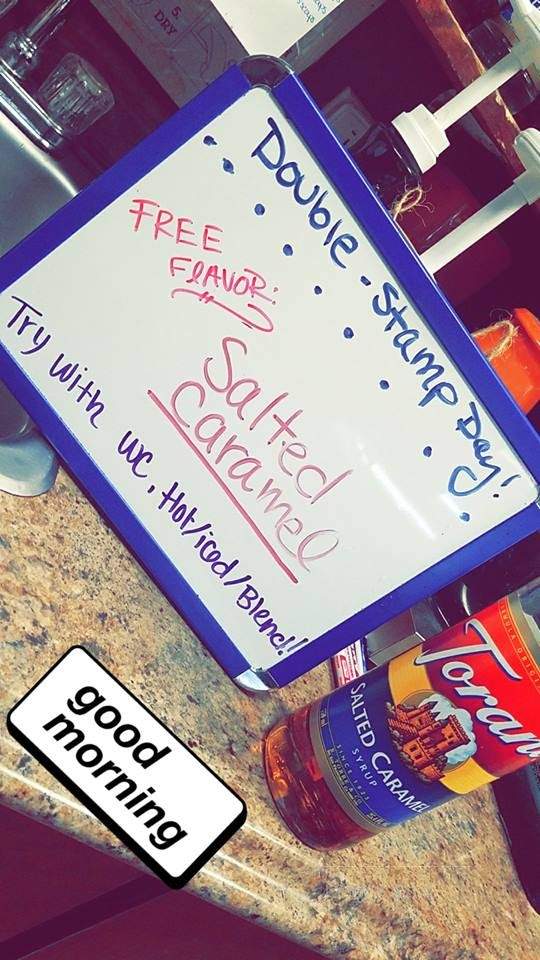 5.
DRY
Double-Stamp Day!
FREE
FLAVOR:
Salted
Caramel
Try with WC, Hot/iced/Blend!!
Toran
SALTED CARAMEL
SYRUP
SINCE 1925
good
morning